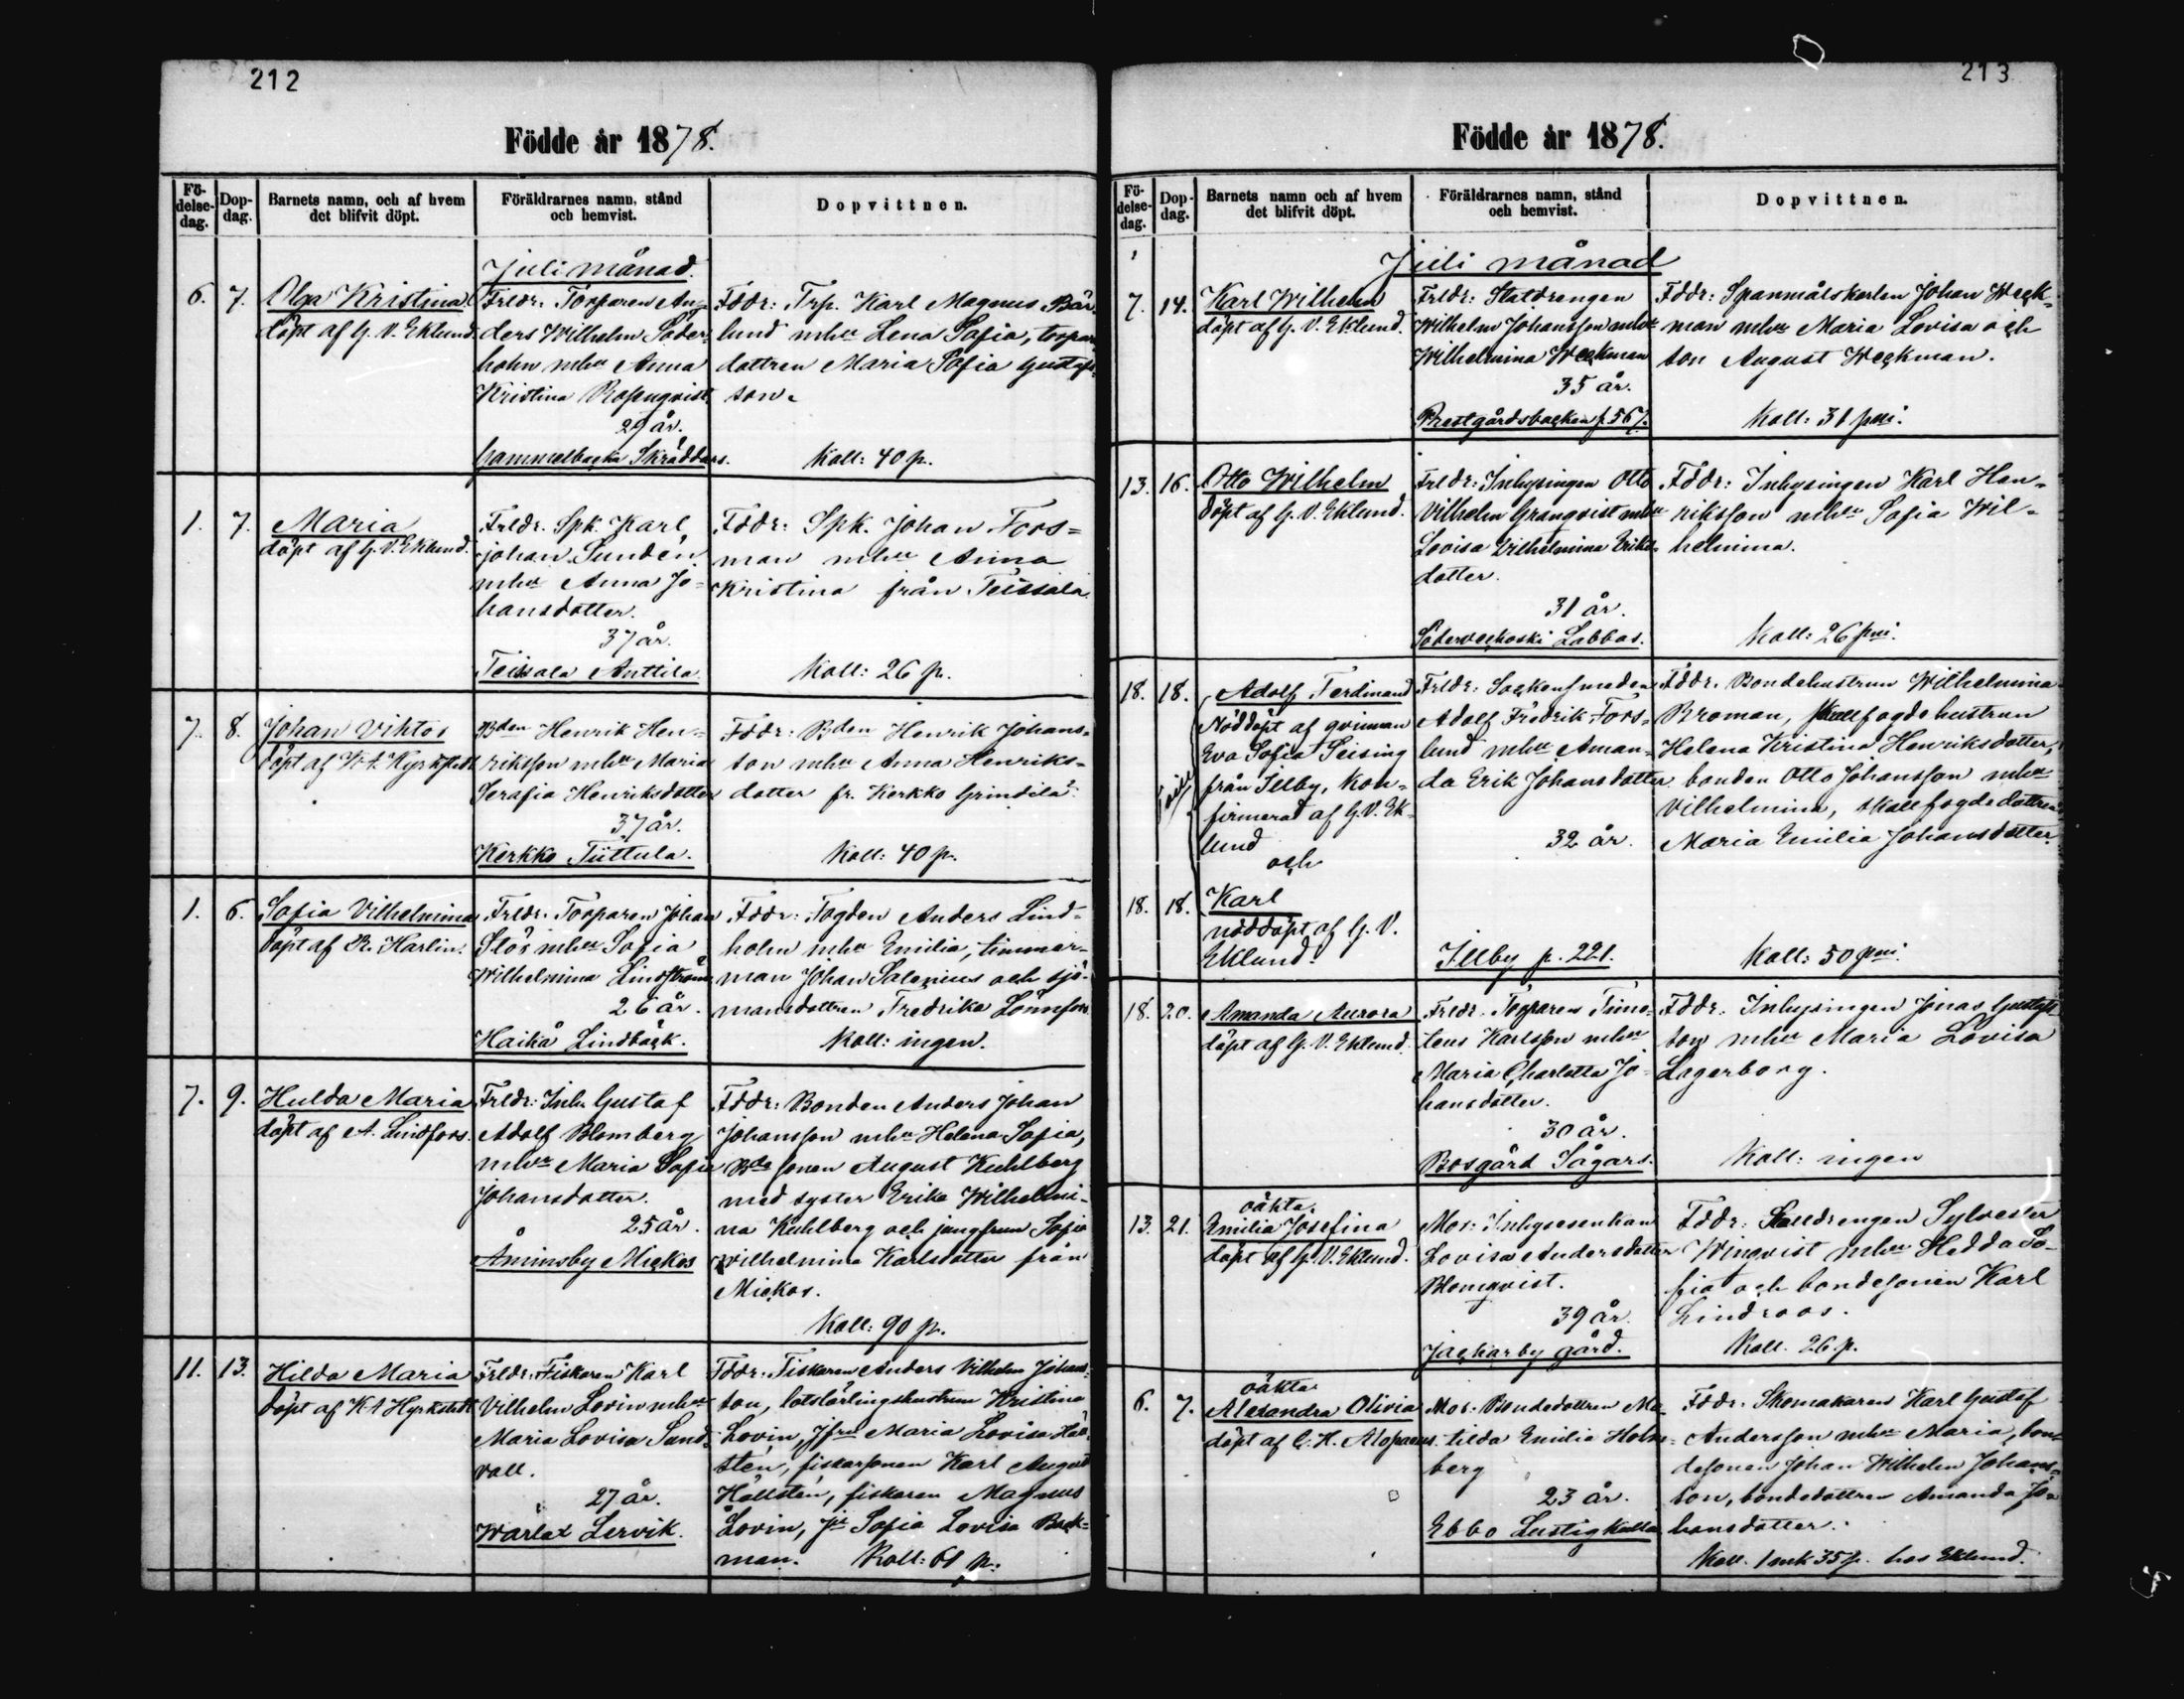 212
Födde år 1878.
Fö-
delse-
dag.
Dop-
dag.
Barnets namn, och af hvem
det blifvit döpt.
Föräldrarnes namn, stånd
och hemvist.
Dopvittnen.
Juli månad.
6. 7. Olga Kristina
döpt af G. V. Eklund.
Frldr: Torparen An-
ders Wilhelm Söder-
holm mhu Anna
Kristina Rosnqvist
29 år.
Gammelbacka Skräddars.
Fddr: Trp. Karl Magnus Bär-
lund mhu Lena Sofia, torpar-
dottren Maria Sofia Gustafs-
son.
Koll: 40 p.
1. 7. Maria
döpt af G. V. Eklund.
Frldr. Spk. Karl
Johan Sundén
mhu Anna Jo-
hansdotter.
37 år.
Teissala Anttila.
Fddr: Spk. Johan Fors-
man mhu Anna
Kristina från Teissala.
Koll: 26 p.
7. 8. Johan Viktor
döpt af K. A. Hyrkstedt
Bden Henrik Hen-
riksson mhu Maria
Serafia Henriksdotter
37 år.
Kerkko Tüttula.
Fddr: Bden Henrik Johans-
son mhu Anna Henriks-
dotter fr. Kerkko Grindilä.
Koll: 40 p.
1. 6. Sofia Vilhelmina
döpt af R. Harlin.
Frldr. Torparen Johan
Slös mhu Sofia
Wilhelmina Lindström
26 år.
Haikå Lindbäck.
Fddr: Fogden Anders Lind-
holm mhu Emilia, timmer-
man Johan Salenius och sjö-
mansdottren Fredrika Lönnfors.
Koll: ingen.
7. 9. Hulda Maria
döpt af A. Lindfors.
Frldr: Inh. Gustaf
Adolf Blomberg
mhu Maria Sofia
Johansdotter.
25 år.
Åminsby Mickos
Fddr: Bonden Anders Johan
Johansson mhu Helena Sofia,
Bde sonen August Kuhlberg
med syster Erika Wilhelmi-
na Kuhlberg och jungfrun Sofia
Wilhelmina Karlsdotter från
Mickos.
Koll: 90 p.
11. 13. Hilda Maria
döpt af K A Hyrkstedt
Frldr: Fiskaren Karl
Vilhelm Lovin mhu
Maria Lovisa Sund-
vall.
27 år.
Warlax Lervik.
Fddr: Fiskaren Anders Vilhelm Johans-
son, lotslärlingshustrun Kristina
Lovin, Jfru Maria Lovisa Häll-
stén, fiskarsonen Karl August
Hällstén, fiskaren Magnus
Lovin, Jfr Sofia Lovisa Back-
man. Koll: 61 p.
213
Födde år 1878.
Fö-
delse-
dag.
Dop-
dag.
Barnets namn och af hvem
det blifvit döpt.
Föräldrarnes namn, stånd
och hemvist.
Dopvittnen.
Juli månad
7. 14. Karl Wilhelm
döpt af G. V. Eklund.
Frldr: Statdrengen
Wilhelm Johansson mhu
Wilhelmina Weckman
35 år.
Prestgårdsbacken p. 567.
Fddr: Spanmålskarlen Johan Weck-
man mhu Maria Lovisa och
son August Weckman.
Koll: 31 pni.
13. 16. Otto Wilhelm
döpt af G. V. Eklund.
Frldr: Inhysingen Otto
Vilhelm Granqvist mhu
Lovisa Vilhelmina Eriks-
dotter.
31 år.
Söderveckoski Labbas.
Fddr: Inhysingen Karl Hen-
riksson mhu Sofia Wil-
helmina.
Koll: 26 pni.
18. 18. Adolf Ferdinand
Nöddöpt af qvinnan
Eva Sofia Seising
från Illby, kon-
firmerad af G. V. Ek-
lund
och
18. 18. Karl
nöddöpt af G. V.
Eklund.
Frldr: Sockensmeden
Adolf Fredrik Fors-
lund mhu Aman-
da Erik Johansdotter
32 år.
Illby p. 221.
Fddr. Bondehustrun Wilhelmina
Broman, skallfogdehustrun
Helena Kristina Henriksdotter,
bonden Otto Johansson mhu
Vilhelmina, skallfogdedottren
Maria Emilia Johansdotter.
Koll: 50 pni.
18. 20. Amanda Aurora
döpt af G. V. Eklund.
Frldr. Torparen Timo-
teus Karlsson mhu
Maria Charlotta Jo-
hansdotter.
30 år.
Bosgård Sågars.
Fddr. Inhysingen Jonas Gustafs-
son mhu Maria Lovisa
Lagerborg.
Koll: ingen
13. 21. oäkta.
Emilia Josefina
döpt af G. V. Eklund.
Mor: Inhysesenkan
Lovisa Andersdotter
Blomqvist.
39 år.
Jackarby gård.
Fddr: Stalldrengen Sylvester
Winqvist mhu Hedda So-
fia och bondesonen Karl
Lindroos.
Koll. 26 p.
6. 7. oäkta
Alexandra Olivia
döpt af C. H. Alopaeus.
Mor. Bondedottren Ma-
tilda Emilia Holm-
berg
23 år.
Ebbo Lustigkulla
Fddr. Skomakaren Karl Gustaf
Andersson mhu Maria, bon-
desonen Johan Wilhelm Johans-
son, bondedottren Amanda Jo-
hansdotter.
Koll. 1 mk 35 p. hos Eklund.